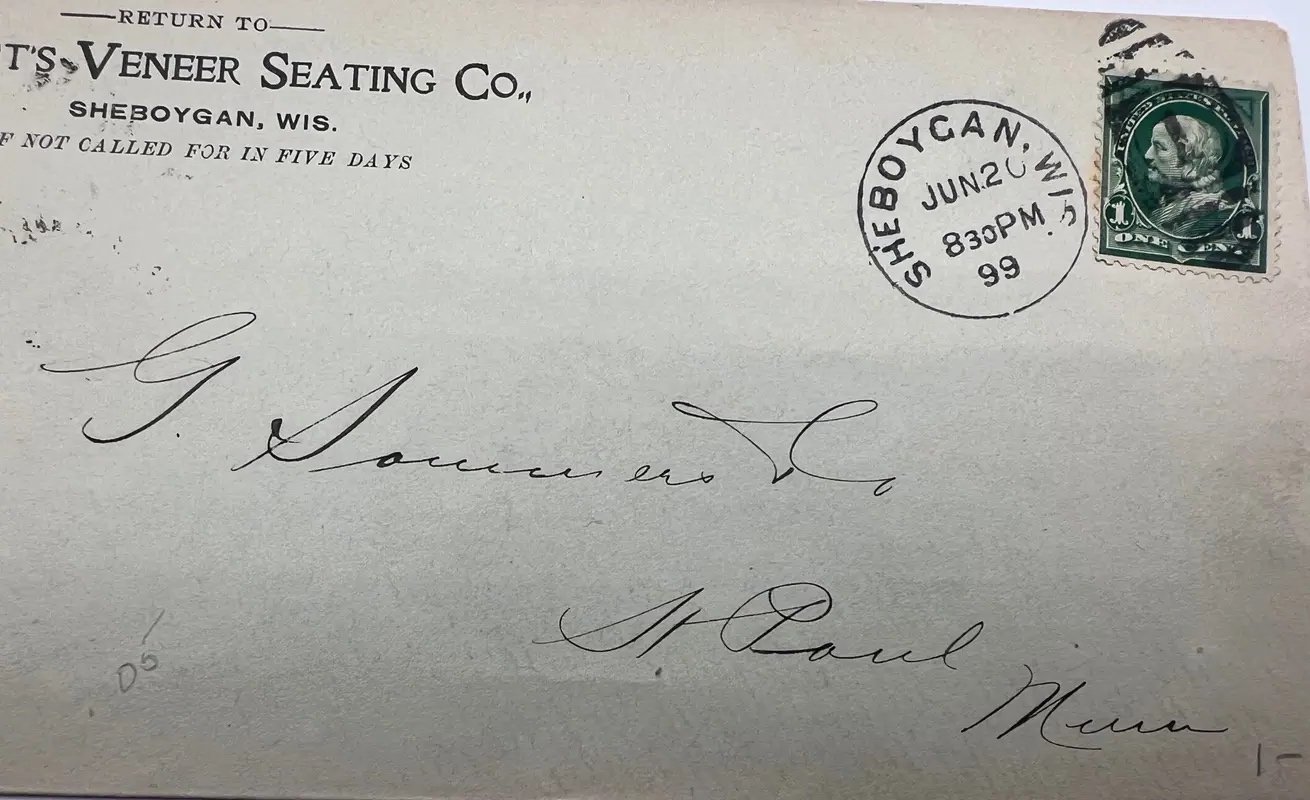 RETURN TO
T'S VENEER SEATING CO.,
SHEBOYGAN, WIS.
F NOT CALLED FOR IN FIVE DAYS
SHEBOYGAN, WIS.
JUN. 20
830PM
99
UNITED STATES
1 1
ONE CENT
G. Sommers & Co
St Paul
Minn
1-